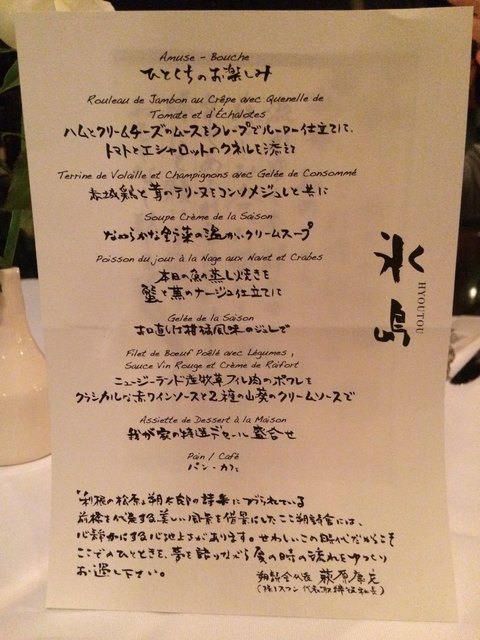 Amuse - Bouche
ひとくちのお楽しみ
Rouleau de Jambon au Crêpe avec Quenelle de
Tomate et d'Échalotes
ハムとクリームチーズのムースをクレープでルーロー仕立てに、
トマトとエシャロットのクネルを添えて
Terrine de Volaille et Champignons avec Gelée de Consommé
赤城鶏と茸のテリーヌをコンソメジュレと共に
Soupe Crème de la Saison
なめらかな野菜の温かいクリームスープ
Poisson du jour à la Nage aux Navet et Crabes
本日の魚の蒸し焼きを
蟹と蕪のナージュ仕立てにて
Gelée de la Saison
お口直しは柑橘風味のジュレで
Filet de Boeuf Poêlé avec Légumes,
Sauce Vin Rouge et Crème de Raifort
ニュージーランド産牧草フィレ肉のポワレを
クラシカルな赤ワインソースと2種の山葵のクリームソースで
Assiette de Dessert à la Maison
我が家の特選デセール盛合せ
Pain / Café
パン・カフェ
氷島
HYOUTOU
利根の松原と朔太郎の詩集につづられている
前橋を代表する美しい風景を借景にしたここ朔詩舎には、
心静かにする心地よさがあります。せわしいこの時代だからこそ
ここでのひとときを、夢を語りながら食の時の流れをゆっくり
お過し下さい。